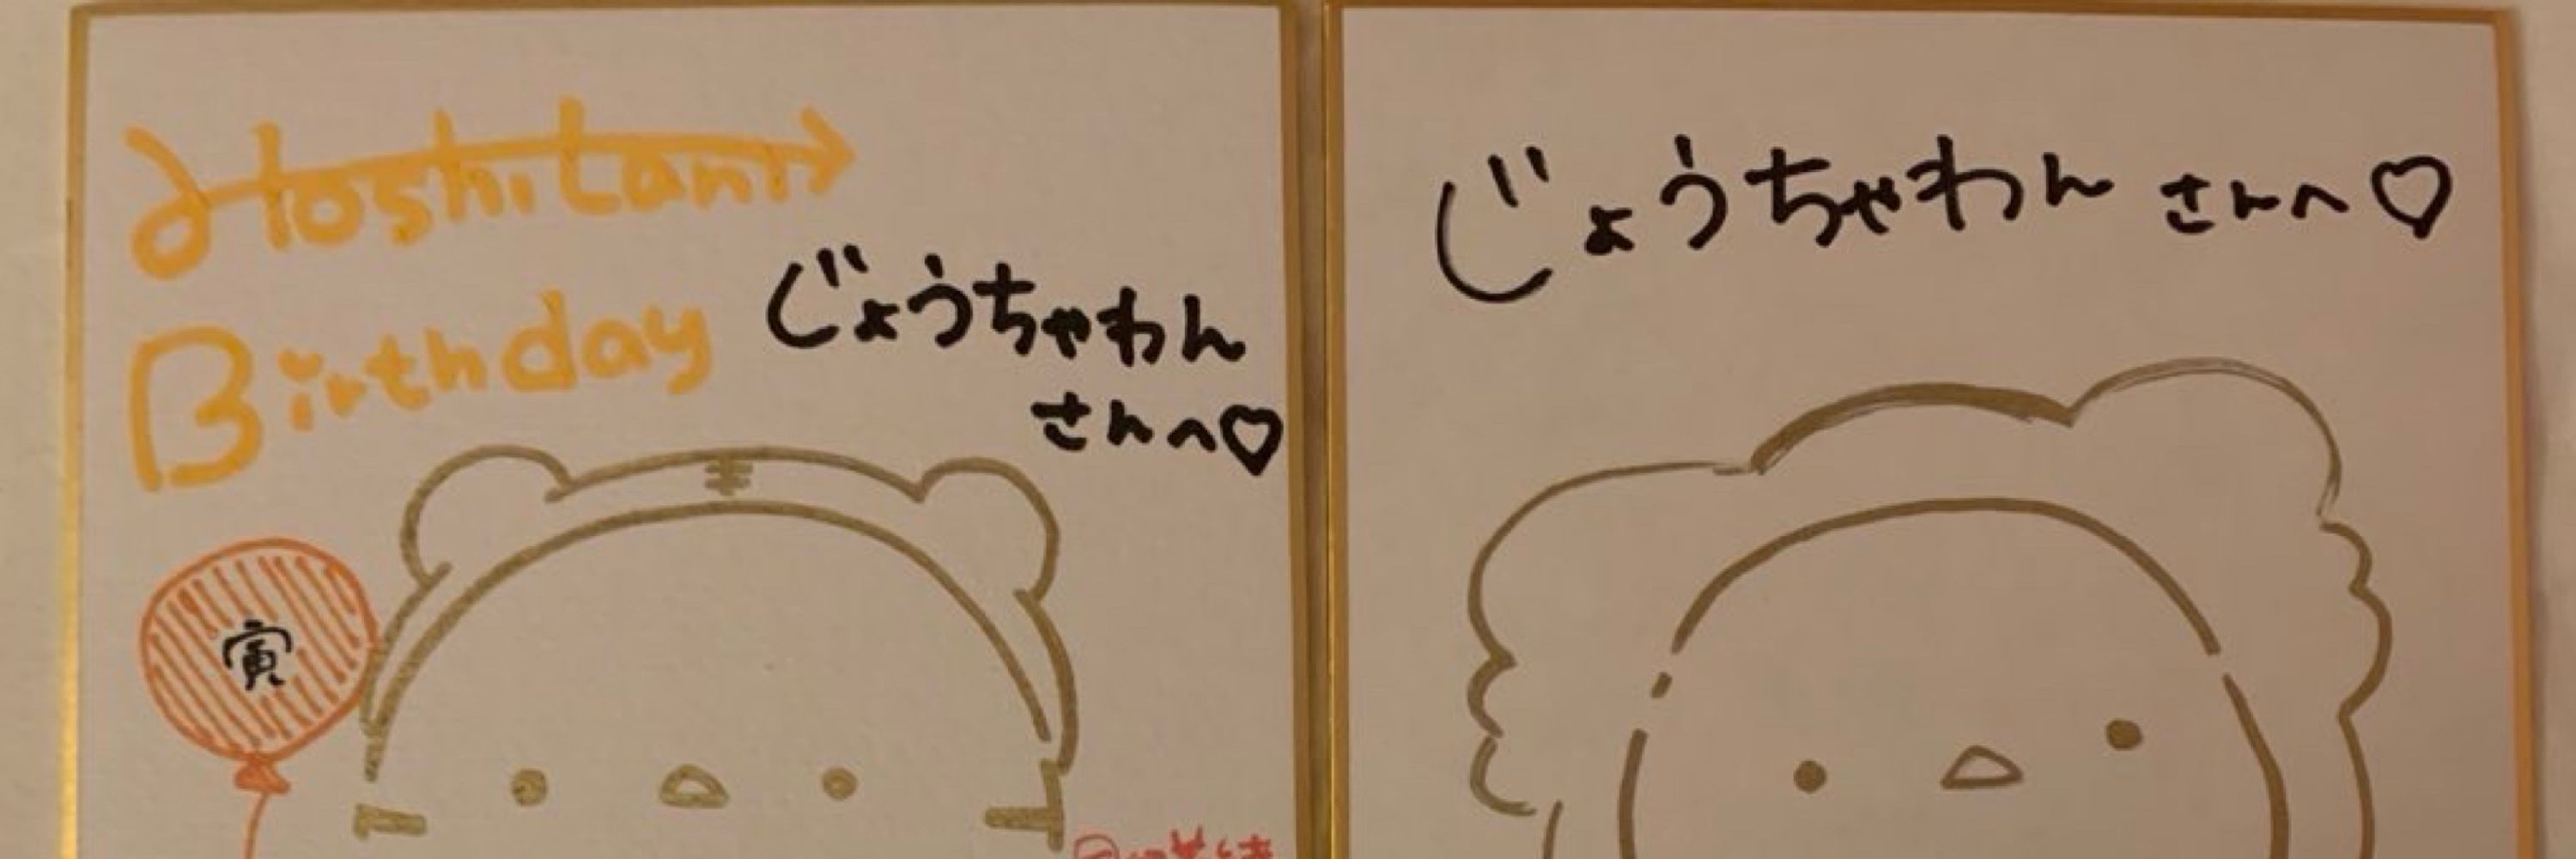 Hoshitani
Birthday
じょうちゃわん
さんへ♡
寅
じょうちゃわん さんへ♡